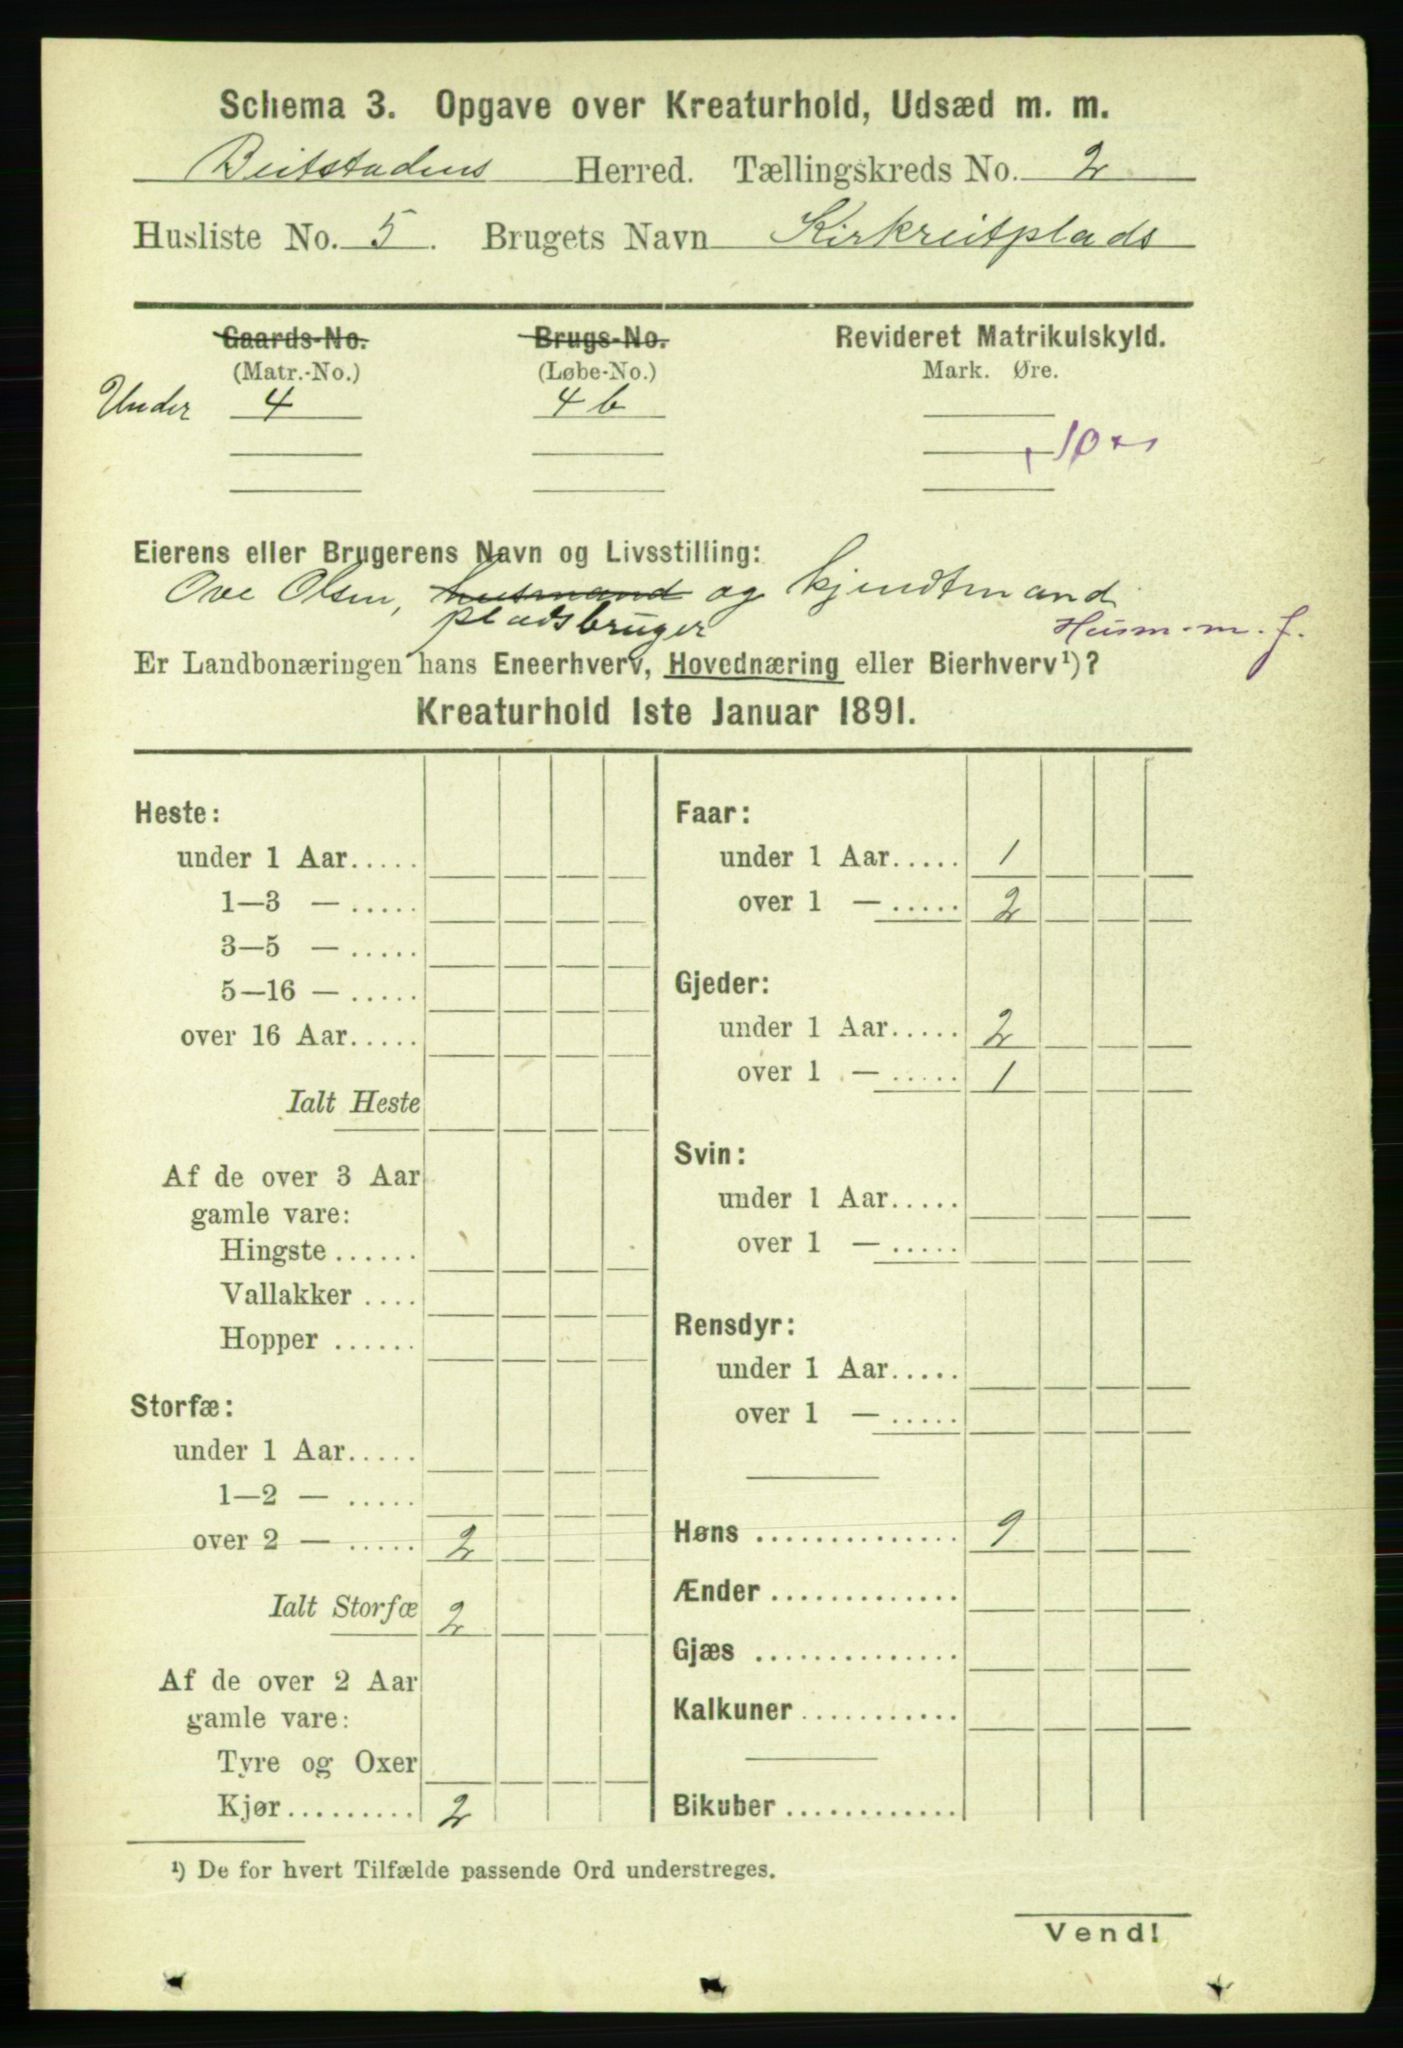 Schema 3. Opgave over Kreaturhold, Udsæd m. m.
Beitstadens Herred. Tællingskreds No. 2
Husliste No. 5. Brugets Navn Kirkreitplads
Gaards-No. Brugs-No. Revideret Matrikulskyld.
(Matr.-No.) (Løbe-No.) Mark. Øre.
Under 4 4 b
Eierens eller Brugerens Navn og Livsstilling:
Ove Olsen, husmand og kjendtmand
pladsbruger Husm. m. J.
Er Landbonæringen hans Eneerhverv, Hovednæring eller Bierhverv¹)?
Kreaturhold 1ste Januar 1891.
Heste:
under 1 Aar.....
1—3 — .....
3—5 — .....
5—16 — .....
over 16 Aar.....
Ialt Heste
Af de over 3 Aar
gamle vare:
Hingste ......
Vallakker ....
Hopper ......
Storfæ:
under 1 Aar.....
1—2 — .....
over 2 — ..... 2
Ialt Storfæ 2
Af de over 2 Aar
gamle vare:
Tyre og Oxer
Kjør......... 2
Faar:
under 1 Aar..... 1
over 1 — ..... 2
Gjeder:
under 1 Aar..... 2
over 1 — ..... 1
Svin:
under 1 Aar.....
over 1 — .....
Rensdyr:
under 1 Aar.....
over 1 — .....
Høns .............. 9
Ænder .............
Gjæs ..............
Kalkuner ...........
Bikuber .............
¹) De for hvert Tilfælde passende Ord understreges.
Vend!